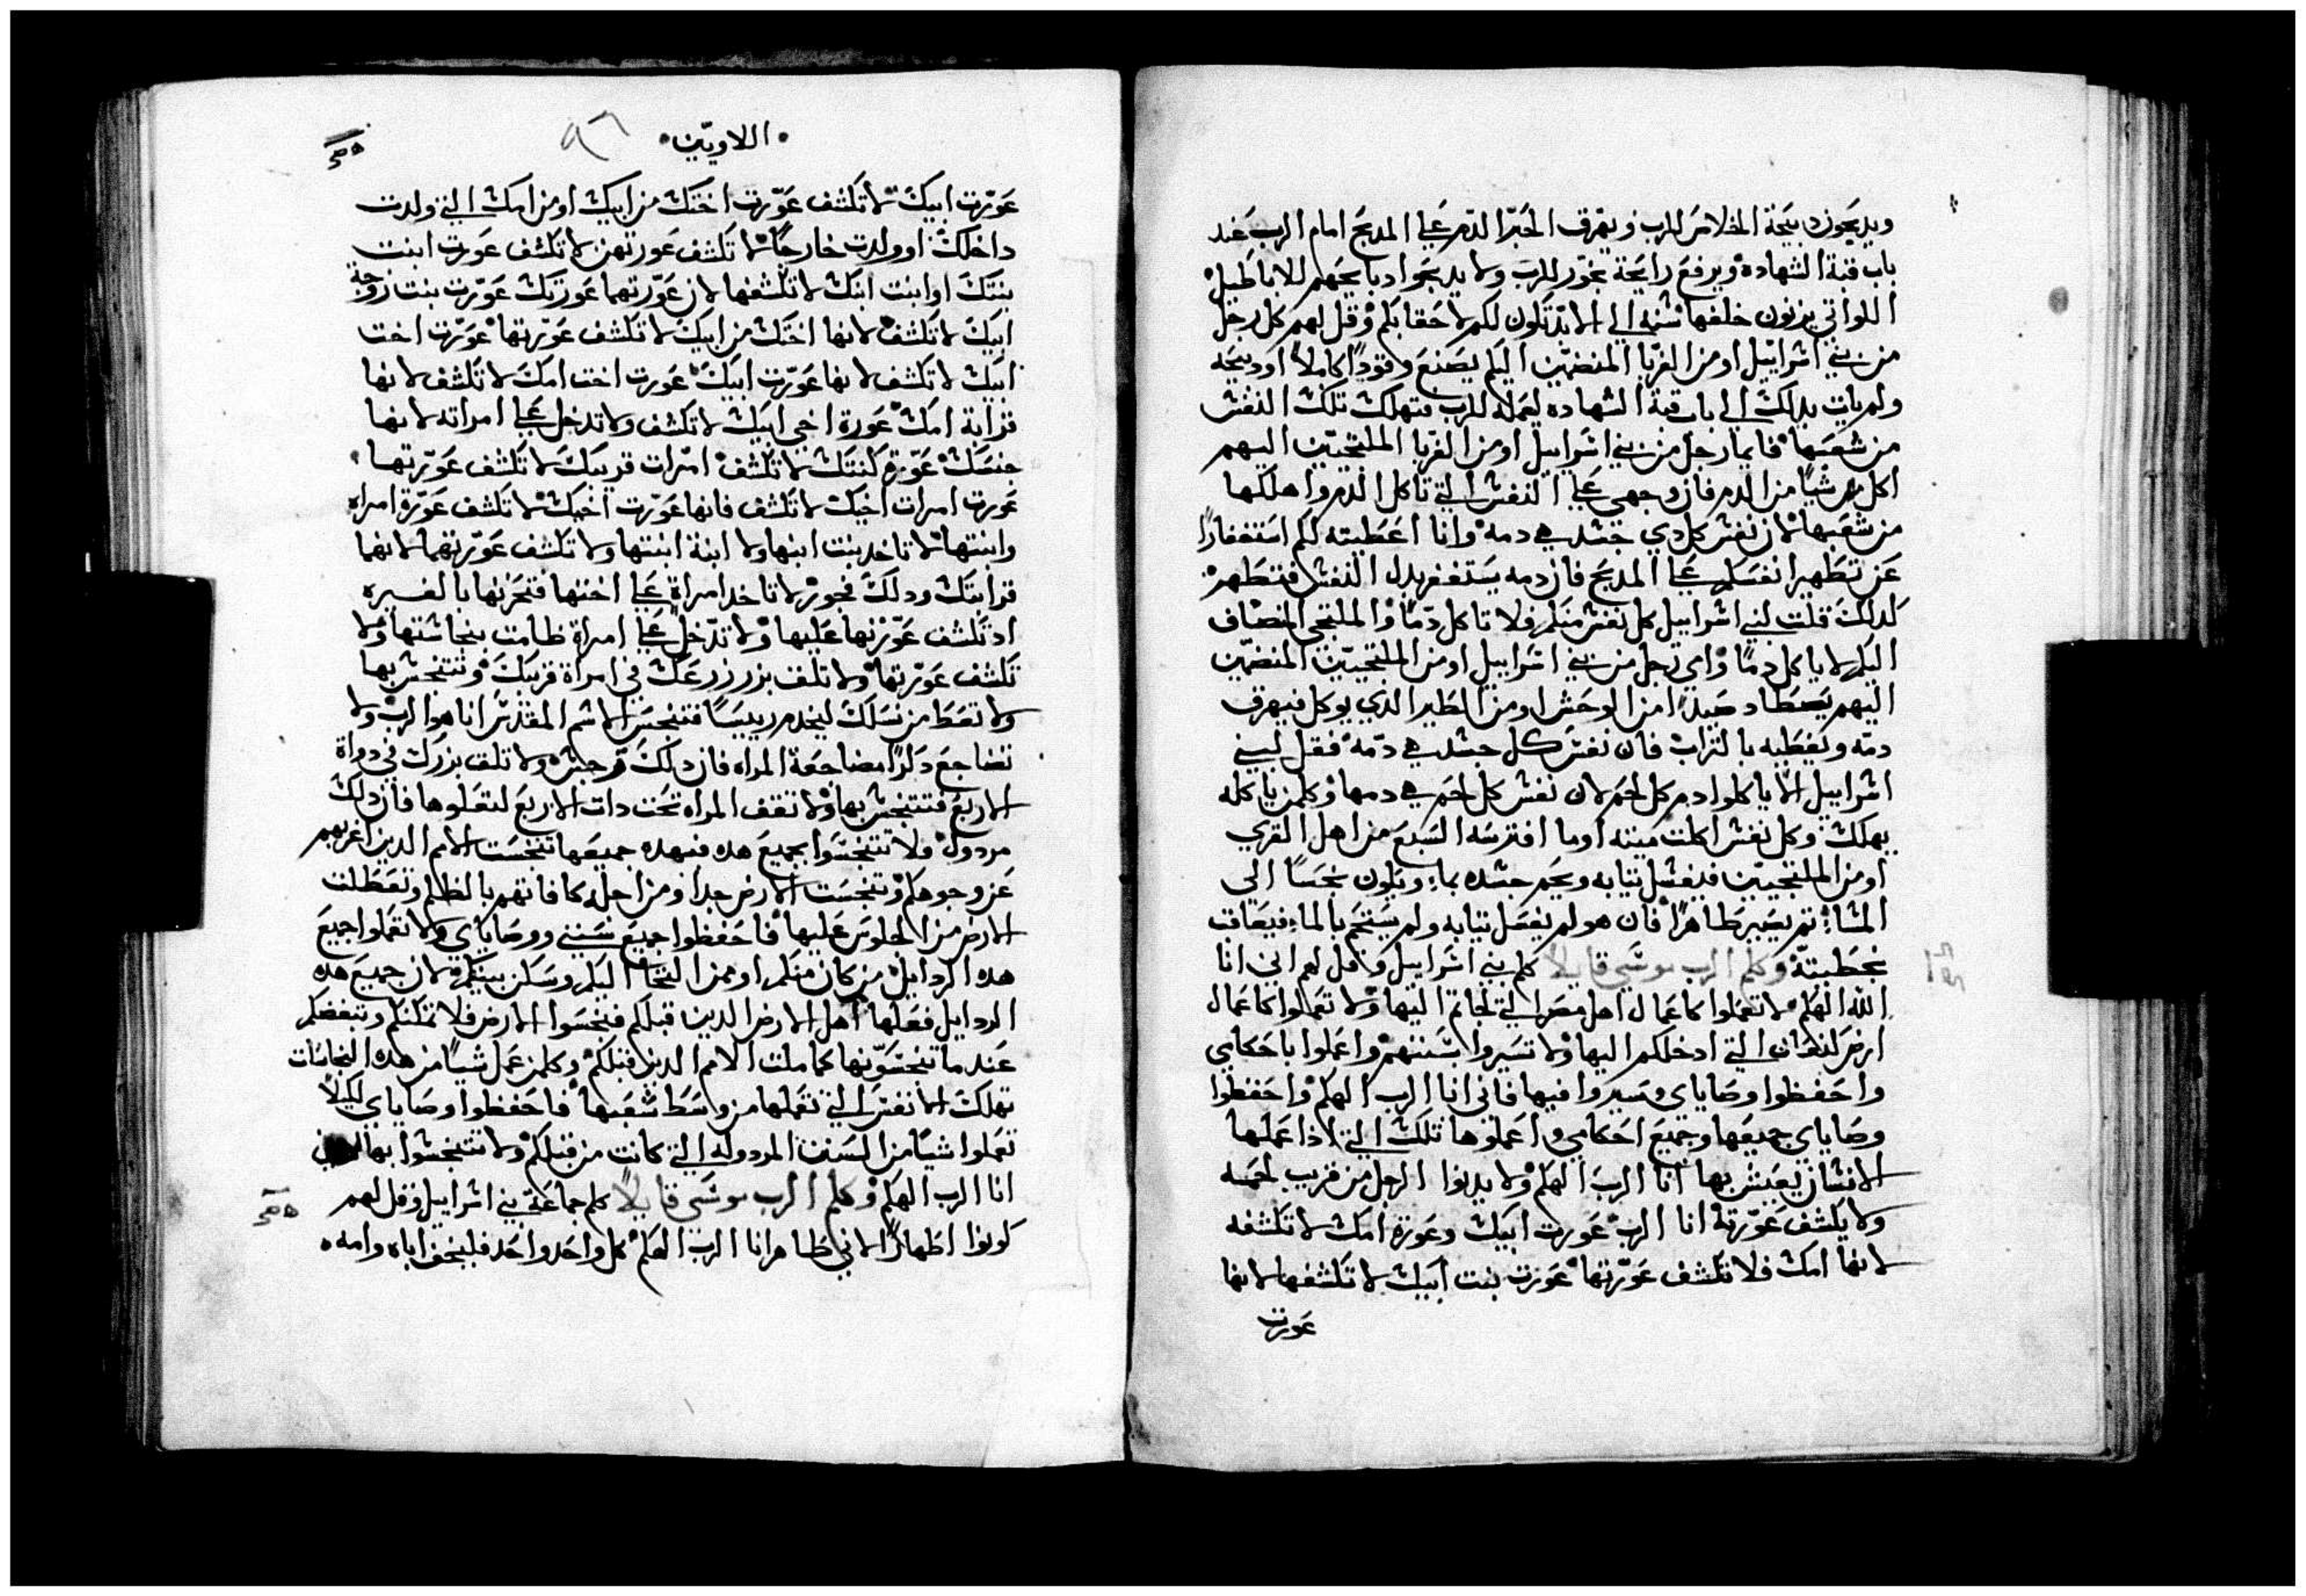 ويدبحون دبيحة الخلاص للرب ويهرق الحبر الدم علي المدبح امام الرب عند
باب قبة الشهاده ويرفع رايحة بخور للرب ولا يدبحوا دبايحهم للاباطيل
اللواتي يزنون خلفها سنه الي الابد تكون لكم لاحقابكم وقل لهم كل رجل
من بني اسراييل او من الغربا المنضمين اليكم يصنع وقودا كاملا او دبيحه
ولم يات بدلك الي باب قبة الشهاده ليعمله للرب فتهلك تلك النفس
من شعبها فايما رجل من بني اسراييل او من الغربا الملتجيين اليهم
اكل شيا من الدم فان وجهي علي النفس التي تاكل الدم واهلكها
من شعبها لان نفس كل دي جسد هي دمه وانا اعطيته لكم استغفارا
عن تطهير انفسكم علي المدبح فان دمه يستغفر بدل النفس فتطهر
لدلك قلت لبني اسراييل كل نفس منكم فلا تاكل دما والملتجي المنضاف
اليكم لا ياكل دما واي رجل من بني اسراييل او من الملتجيين المنضمين
اليهم يصطاد صيدا من الوحش او من الطير الدي يوكل فيهرق
دمه ويغطيه بالتراب فان نفس كل جسد هي دمه فقل لبني
اسراييل الا ياكلوا دم كل لحم لان نفس كل لحم هي دمها وكلمن ياكله
يهلك وكل نفس اكلت ميته او ما افترسه السبع من اهل القري
او من الملتجيين فليغسل تيابه ويحم جسده بماء ويكون نجسا الي
المساء تم يصير طاهرا فان هو لم يغسل تيابه ولم يستحم بالماء فيعاقب
بخطيته وكلم الرب موسي قايلا كلم بني اسراييل وقل لهم اني انا
الله الهكم لا تعملوا كاعمال اهل مصر التي لجاتم اليها ولا تعملوا كاعمال
ارض كنعان التي ادخلكم اليها ولا تسيروا بسننهم واعملوا باحكامي
واحفظوا وصاياي وسيروا فيها فاني انا الرب الهكم واحفظوا
وصاياي جميعها وجميع احكامي واعملوها تلك التي ادا عملها
الانسان يعيش بها انا الرب الهكم ولا يدنوا الرجل من قريب لحمه
ولا يكشف عورته انا الرب عورت ابيك وعورة امك لا تكشفه
لانها امك فلا تكشف عورتها عورت بنت ابيك لا تكشفها لانها
عورت
اللاويين ٩٦
عورت ابيك لا تكشف عورت اختك من ابيك او من امك التي ولدت
داخلك او ولدت خارجا لا تكشف عورتهن لا تكشف عورت ابنت
بنتك او ابنت ابنك لا تكشفها لان عورتهما عورتك عورت بنت زوجة
ابيك لا تكشف لانها اختك من ابيك لا تكشف عورتها عورت اخت
ابيك لا تكشف لانها عورت ابيك عورت اخت امك لا تكشف لانها
قرابة امك عورة اخي ابيك لا تكشف ولا تدخل علي امراته لانها
جنسك عورة كنتك لا تكشف امرات قريبك لا تكشف عورتها
عورت امرات اخيك لا تكشف فانها عورت اخيك لا تكشف عورة امراه
وابنتها لا تاخد بنت ابنها ولا ابنة ابنتها ولا تكشف عورتهما لانهما
قرابتك ودلك فجور لا تاخد امراة علي اختها فتحزنها بالغيره
اد تكشف عورتها عليها ولا تدخل علي امراة طامت بنجاستها ولا
تكشف عورتها ولا تلف بزر زرعك في امراة قريبك وتتنجس بها
ولا تعط من نسلك ليخدم رييسا فتنجس الاسم المقدس انا هو الرب ولا
تضاجع دكرا مضاجعة المراه فان دلك رجس ولا تلف بزرك في دواة
الاربع فتتنجس بها ولا تقف المراه تحت دات الاربع لتعلوها فان دلك
مردول ولا تتنجسوا بجميع هده فبهده جميعها تنجست الامم الدين اغربهم
عن وجوهكم وتنجست الارض جدا ومن اجله كافاتهم بالظلم وتعطلت
الارض من الجلوس عليها فاحفظوا جميع سنني ووصاياي ولا تعملوا جميع
هده الردايل من كان منكم او ممن التجا اليكم وسكن بينكم لان جميع هده
الردايل فعلها اهل الارض الدين قبلكم فنجسوا الارض فلا تمتكم وتبغضكم
عند ما تنجسونها كما ملت الامم الدين قبلكم وكلمن عمل شيا من هده النجاسات
تهلك الانفس التي تعملها من واسط شعبها فاحفظوا وصاياي لكيلا
تعملوا شيا من السنن المردوله التي كانت من قبلكم ولا تتنجسوا بها
انا الرب الهكم وكلم الرب موسي قايلا كلم جماعة بني اسراييل وقل لهم
كونوا اطهارا لاني طاهر انا الرب الهكم كل واحد واحد فليخف اباه وامه